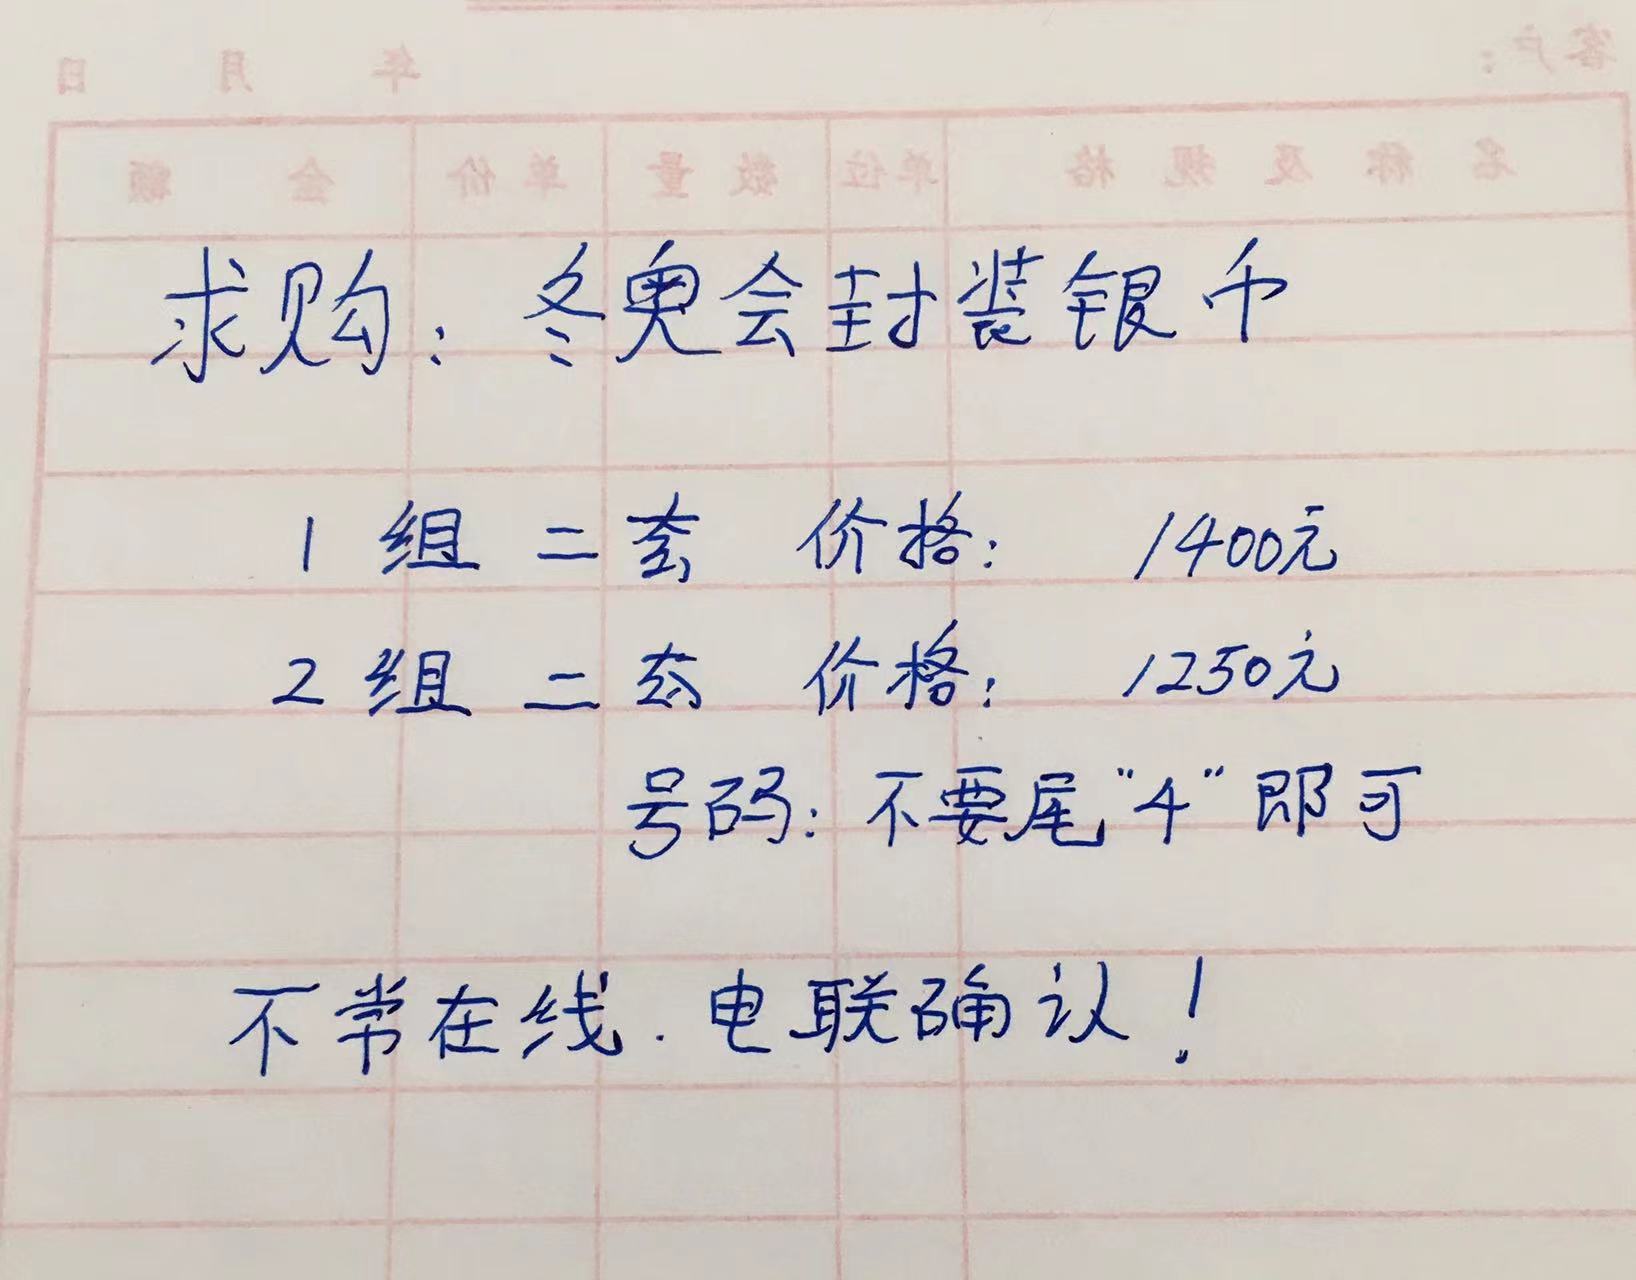 客户：
年 月 日
名称及规格 单位 数量 单价 金额
求购：冬奥会封装银币
1组 二套 价格： 1400元
2组 二套 价格： 1250元
号码：不要尾"4"即可
不常在线．电联确认！